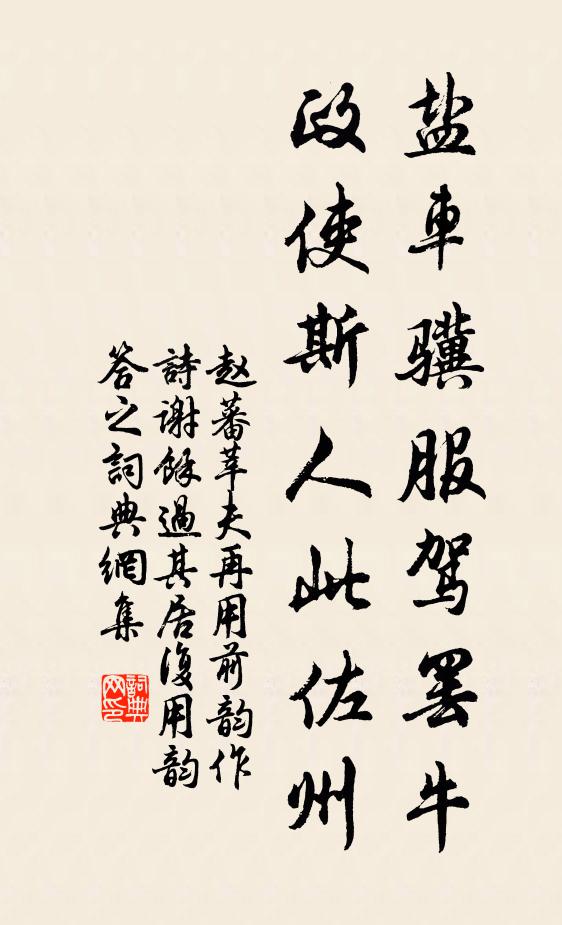 盐車骥服驾罢牛
政使斯人此佐州
赵蕃莘夫再用前韵作
詩谢馀過其居復用韵
答之詞典網集
詞典网印